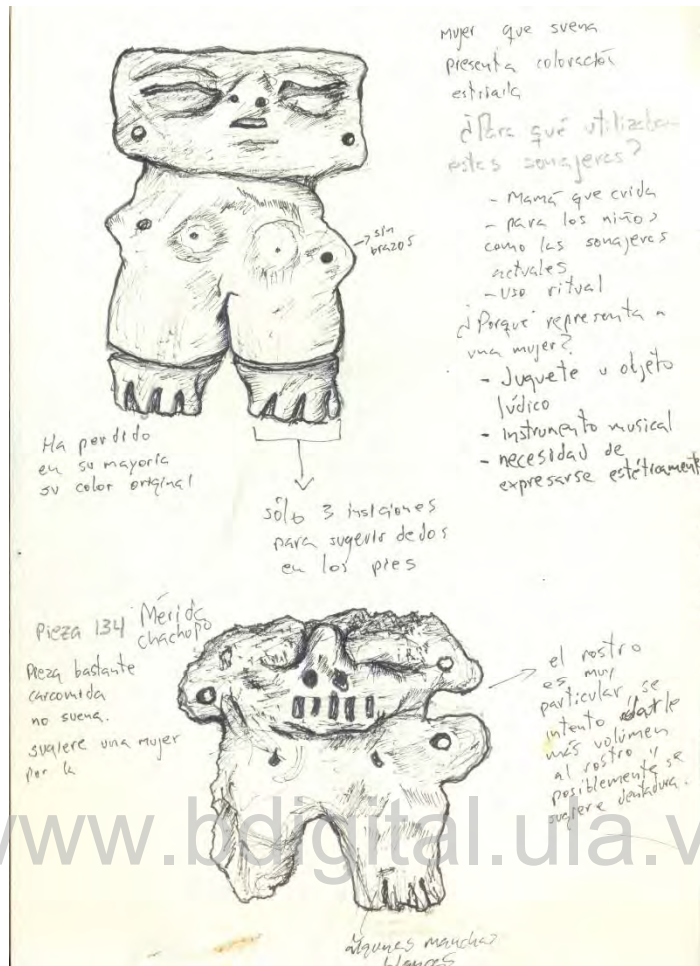 Mujer que suena
presenta coloración
estriada
¿Para qué utilizaban
estas sonajeras?
- Mamá que cuida
- para los niños
como las sonajeras
actuales
- uso ritual
¿Porqué representa a
una mujer?
- Juguete u objeto
lúdico
- instrumento musical
- necesidad de
expresarse estéticamente
→ sin
brazos
Ha perdido
en su mayoria
su color original
sólo 3 insiciones
para sugerir dedos
en los pies
Pieza 134 Mérida
chachopo
Pieza bastante
carcomida
no suena.
sugiere una mujer
por la
el rostro
es muy
particular se
intento darle
más volúmen
al rostro y
posiblemente se
sugiere dentadura.
www.bdigital.ula.v
algunas manchas
blancas